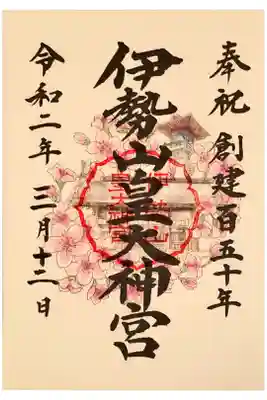 奉祝 創建百五十年
伊勢山皇大神宮
令和二年 三月十二日